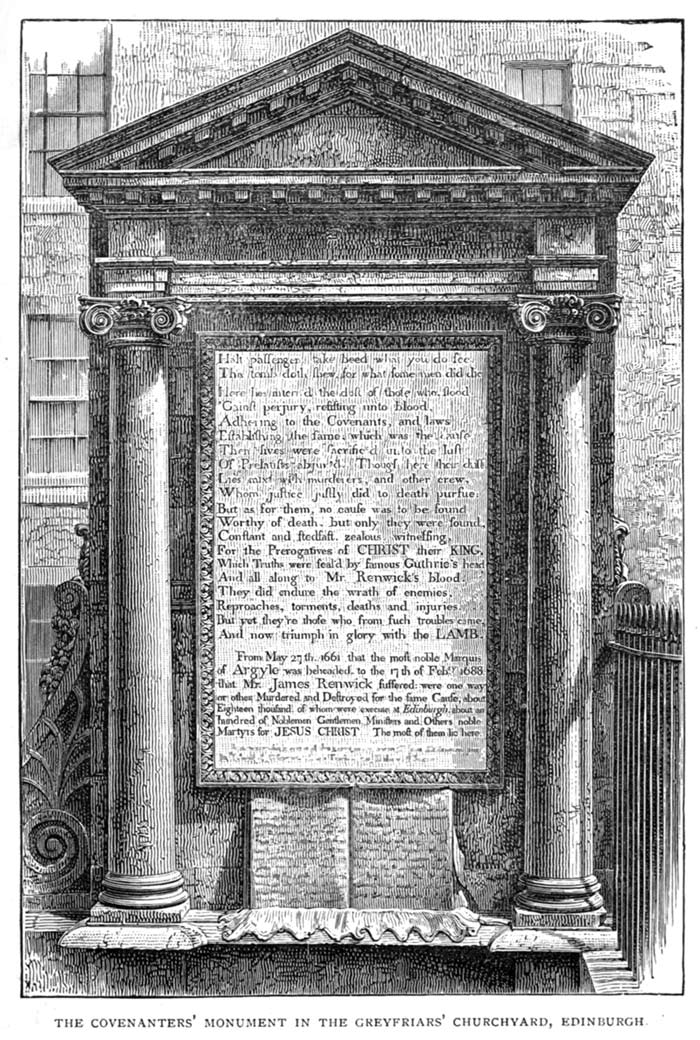 Halt passenger, take heed what you do see.
This tomb doth shew, for what some men did die
Here lies interr'd the dust of those who stood
'Gainst perjury, resisting unto blood,
Adhering to the Covenants, and laws
Establishing the same, which was the cause
Their lives were sacrific'd unto the lust
Of Prelatists abjur'd. Though here their dust
Lies mixt with murderers, and other crew,
Whom justice justly did to death pursue:
But as for them, no cause was to be found
Worthy of death, but only they were found,
Constant and stedfast, zealous, witnessing,
For the Prerogatives of CHRIST their KING.
Which Truths were seal'd by famous Guthrie's head
And all along to Mr. Renwick's blood.
They did endure the wrath of enemies,
Reproaches, torments, deaths and injuries.
But yet they're those who from such troubles came,
And now triumph in glory with the LAMB.
From May 27th. 1661 that the most noble Marquis
of Argyle was beheaded, to the 17th of Febry 1688
that Mr. James Renwick suffered; were one way
or other Murdered and Destroyed for the same Cause, about
Eighteen thousand, of whom were execute at Edinburgh, about an
hundred of Noblemen Gentlemen, Ministers and Others noble
Martyrs for JESUS CHRIST. The most of them lie here.
THE COVENANTERS' MONUMENT IN THE GREYFRIARS' CHURCHYARD, EDINBURGH.